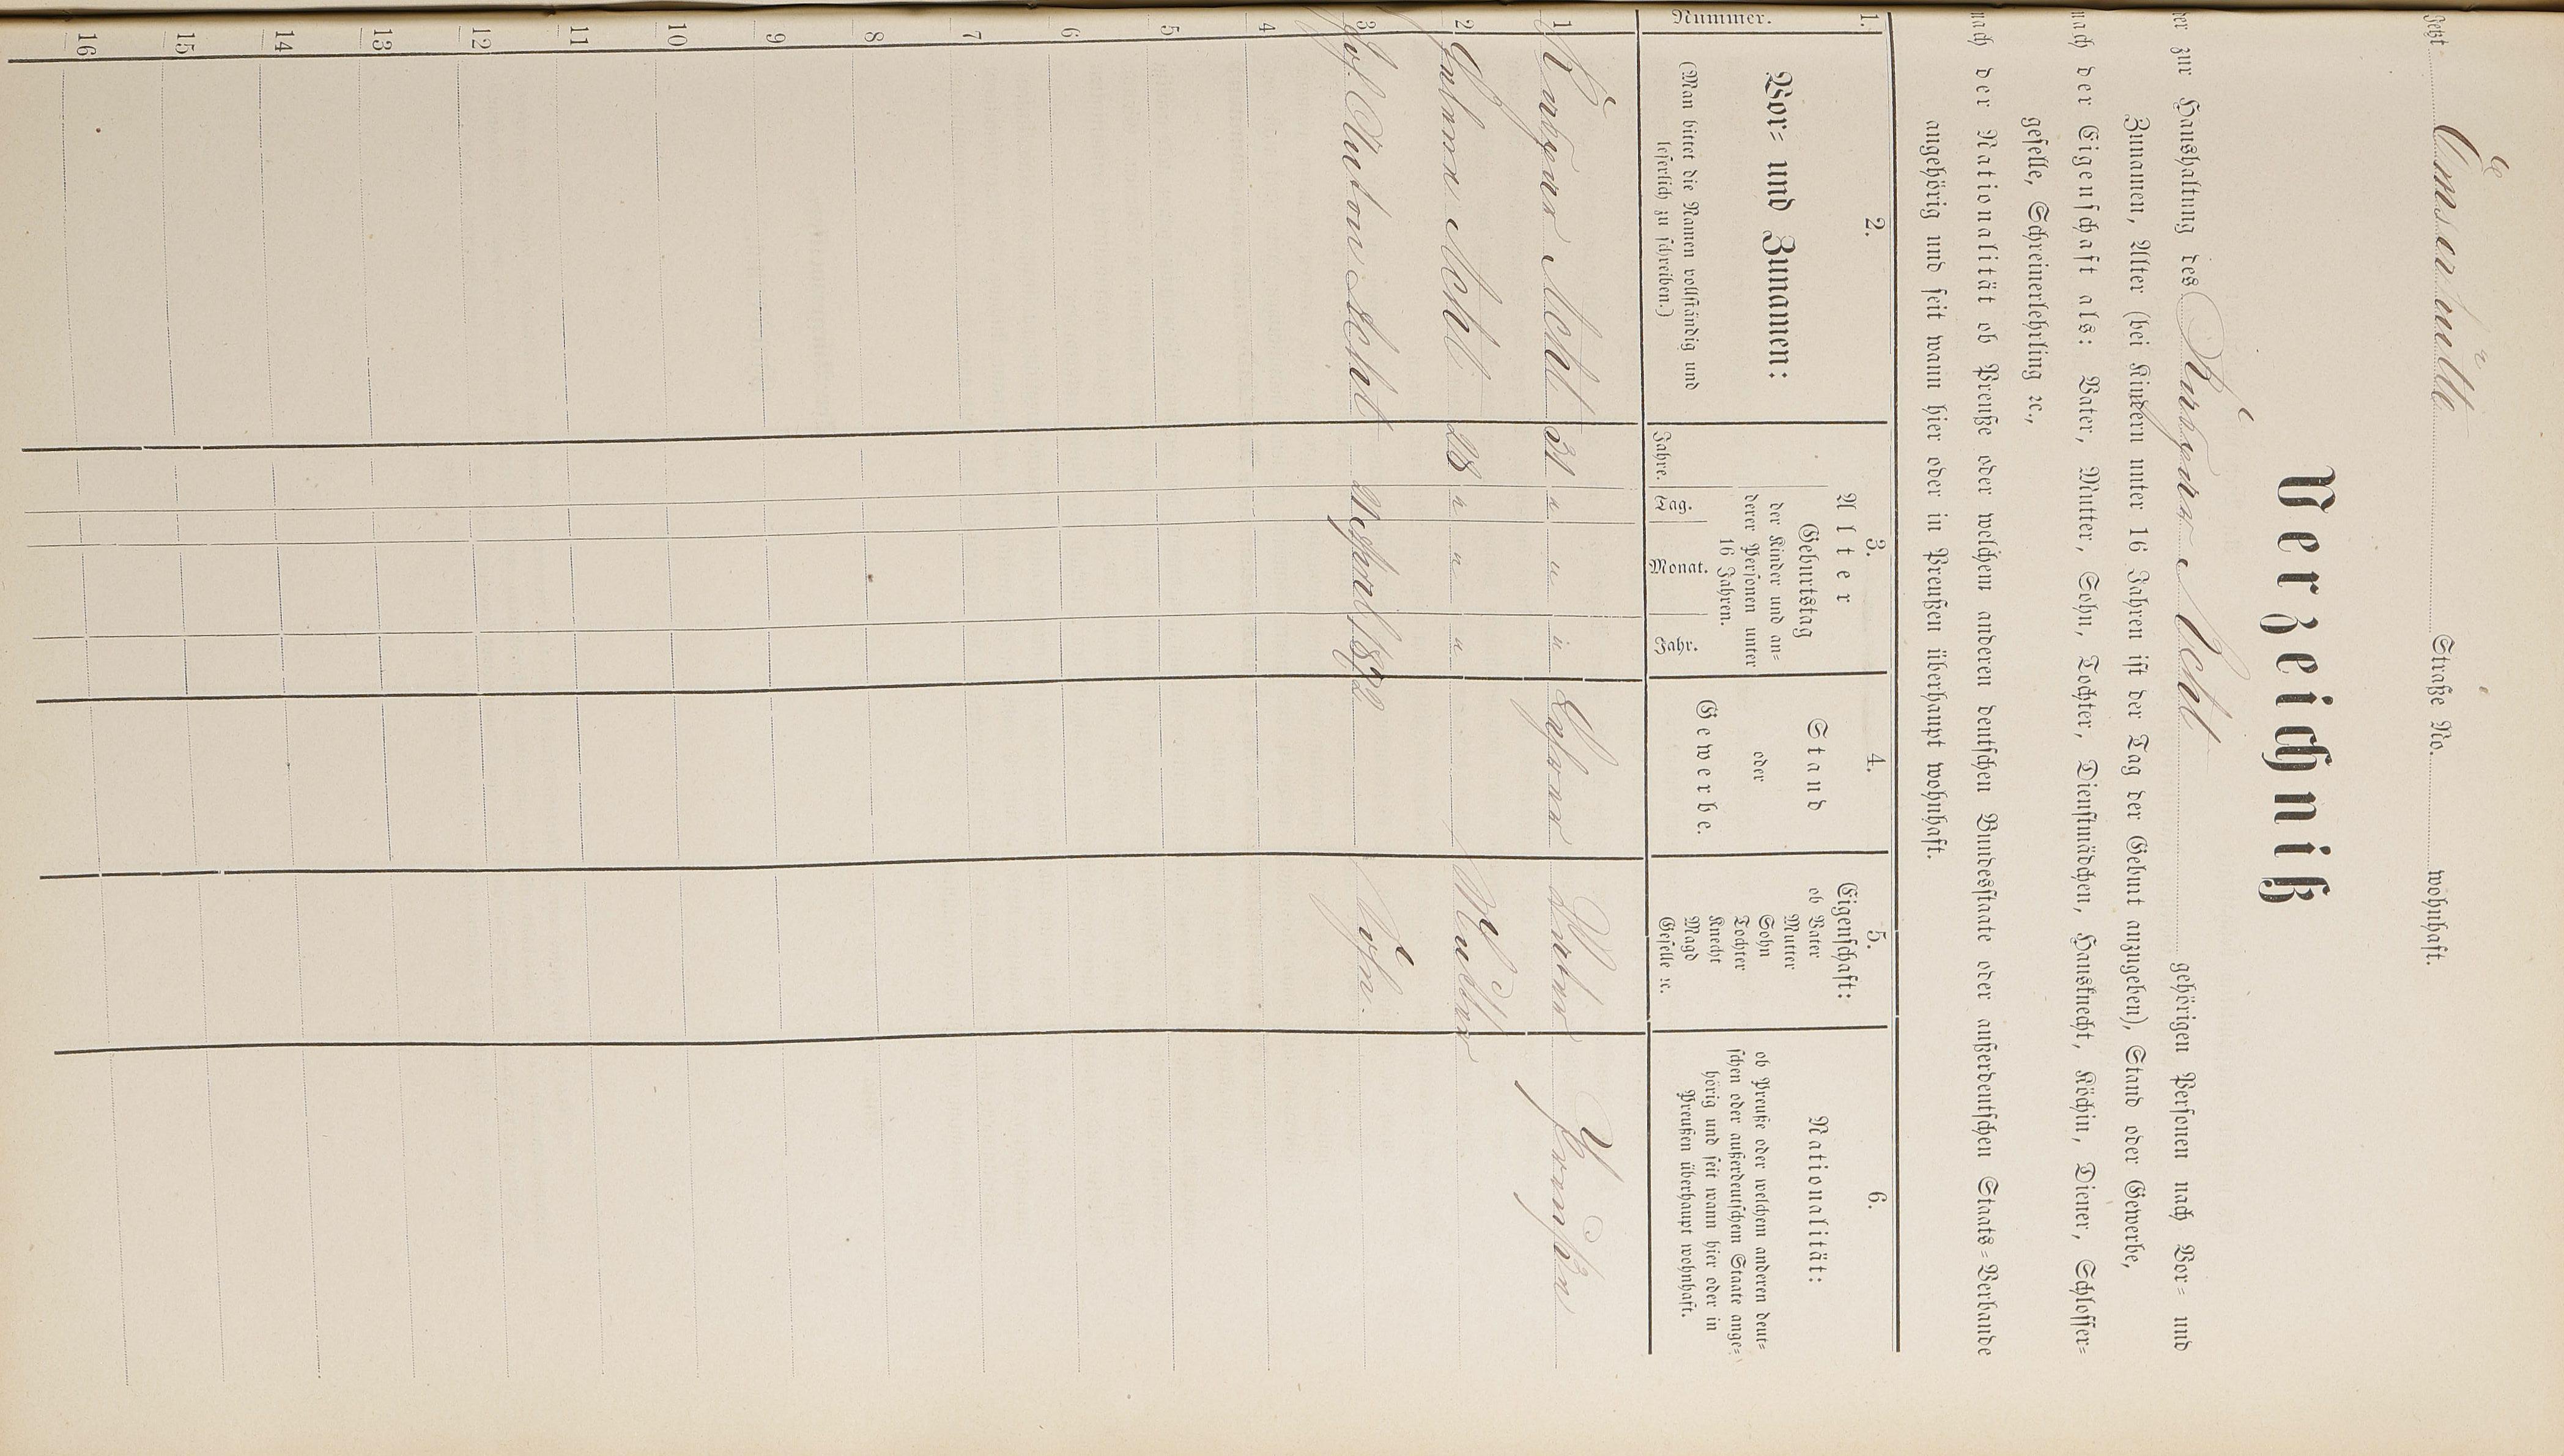 jetzt Emserhütte Straße No. wohnhaft.
Verzeichniß
der zur Haushaltung des Acht gehörigen Personen nach Vor- und
Zunamen, Alter (bei Kindern unter 16 Jahren ist der Tag der Geburt anzugeben), Stand oder Gewerbe,
nach der Eigenschaft als: Vater, Mutter, Sohn, Tochter, Dienstmädchen, Hausknecht, Köchin, Diener, Schlosser-
geselle, Schreinerlehrling ꝛc.,
nach der Nationalität ob Preuße oder welchem anderen deutschen Bundesstaate oder außerdeutschen Staats-Verbande
angehörig und seit wann hier oder in Preußen überhaupt wohnhaft.
1. 2. 3. 4. 5. 6.
Nummer.
Vor- und Zunamen:
(Man bittet die Namen vollständig und
leserlich zu schreiben.)
Alter
Jahre.
Geburtstag
der Kinder und an-
derer Personen unter
16 Jahren.
Tag. Monat. Jahr.
Stand
oder
Gewerbe.
Eigenschaft:
ob Vater
Mutter
Sohn
Tochter
Knecht
Magd
Geselle ꝛc.
Nationalität:
ob Preuße oder welchem anderen deut-
schen oder außerdeutschem Staate ange-
hörig und seit wann hier oder in
Preußen überhaupt wohnhaft.
1 Acht 31 " " " Vater Preußen
2 Acht 28 " " " Mutter
3 Joh. Anton Acht 1872 Sohn.
4
5
6
7
8
9
10
11
12
13
14
15
16